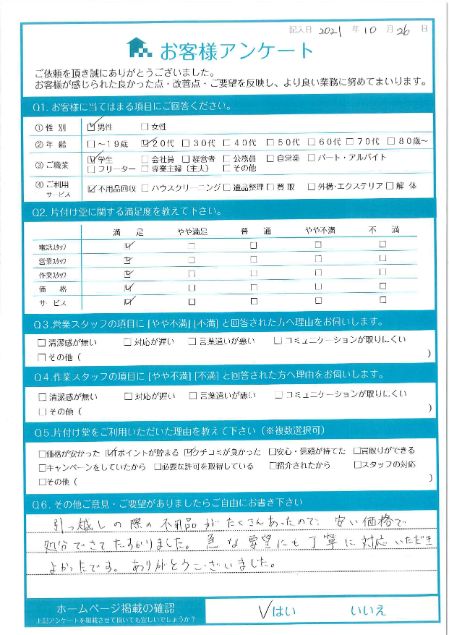 記入日 2021 年 10 月 26 日
お客様アンケート
ご依頼を頂き誠にありがとうございました。
お客様が感じられた良かった点・改善点・ご要望を反映し、より良い業務に努めてまいります。
Q1. お客様に当てはまる項目にご回答ください。
① 性 別 ☑男性 □女性
② 年 齢 □〜19歳 ☑20代 □30代 □40代 □50代 □60代 □70代 □80歳〜
③ ご職業 ☑学生 □会社員 □経営者 □公務員 □自営業 □パート・アルバイト
□フリーター □専業主婦（主人） □その他
④ ご利用サービス ☑不用品回収 □ハウスクリーニング □遺品整理 □買取 □外構・エクステリア □解体
Q2. 片付け堂に関する満足度を教えて下さい。
満足 やや満足 普通 やや不満 不満
電話スタッフ ☑ □ □ □ □
営業スタッフ ☑ □ □ □ □
作業スタッフ ☑ □ □ □ □
価格 ☑ □ □ □ □
サービス ☑ □ □ □ □
Q3.営業スタッフの項目に [やや不満] [不満] と回答された方へ理由をお伺いします。
□清潔感が無い □対応が遅い □言葉遣いが悪い □コミュニケーションが取りにくい
□その他 ( )
Q4.作業スタッフの項目に [やや不満] [不満] と回答された方へ理由をお伺いします。
□清潔感が無い □対応が遅い □言葉遣いが悪い □コミュニケーションが取りにくい
□その他 ( )
Q5.片付け堂をご利用いただいた理由を教えて下さい（※複数選択可）
□価格が安かった ☑ポイントが貯まる ☑クチコミが良かった □安心・信頼が持てた □買取りができる
□キャンペーンをしていたから □必要な許可を取得している □紹介されたから □スタッフの対応
□その他( )
Q6. その他ご意見・ご要望がありましたらご自由にお書き下さい
引っ越しの際の不用品がたくさんあったので、安い価格で
処分できてたすかりました。急な要望にも丁寧に対応いただき
よかったです。ありがとうございました。
ホームページ掲載の確認 ✓はい いいえ
上記アンケートを掲載させて頂いても宜しいでしょうか？